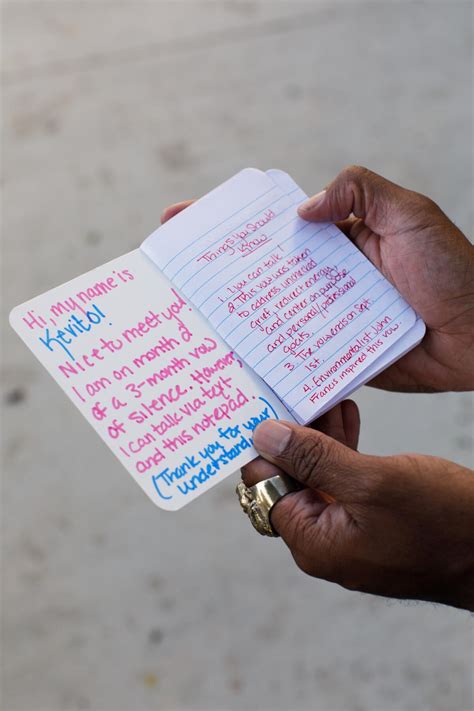 Hi, my name is
Kevito!
Nice to meet you!
I am on month 2
of a 3-month vow
of silence. However,
I can talk via text
and this notepad.
(Thank you for your
understanding)
Things You Should
Know
1. You can talk!
2. This vow was taken
to address unchecked
grief, redirect energy,
and center on purpose
and personal/professional
goals.
3. The vow ends on Sept.
1st.
4. Environmentalist John
Francis inspired this vow.